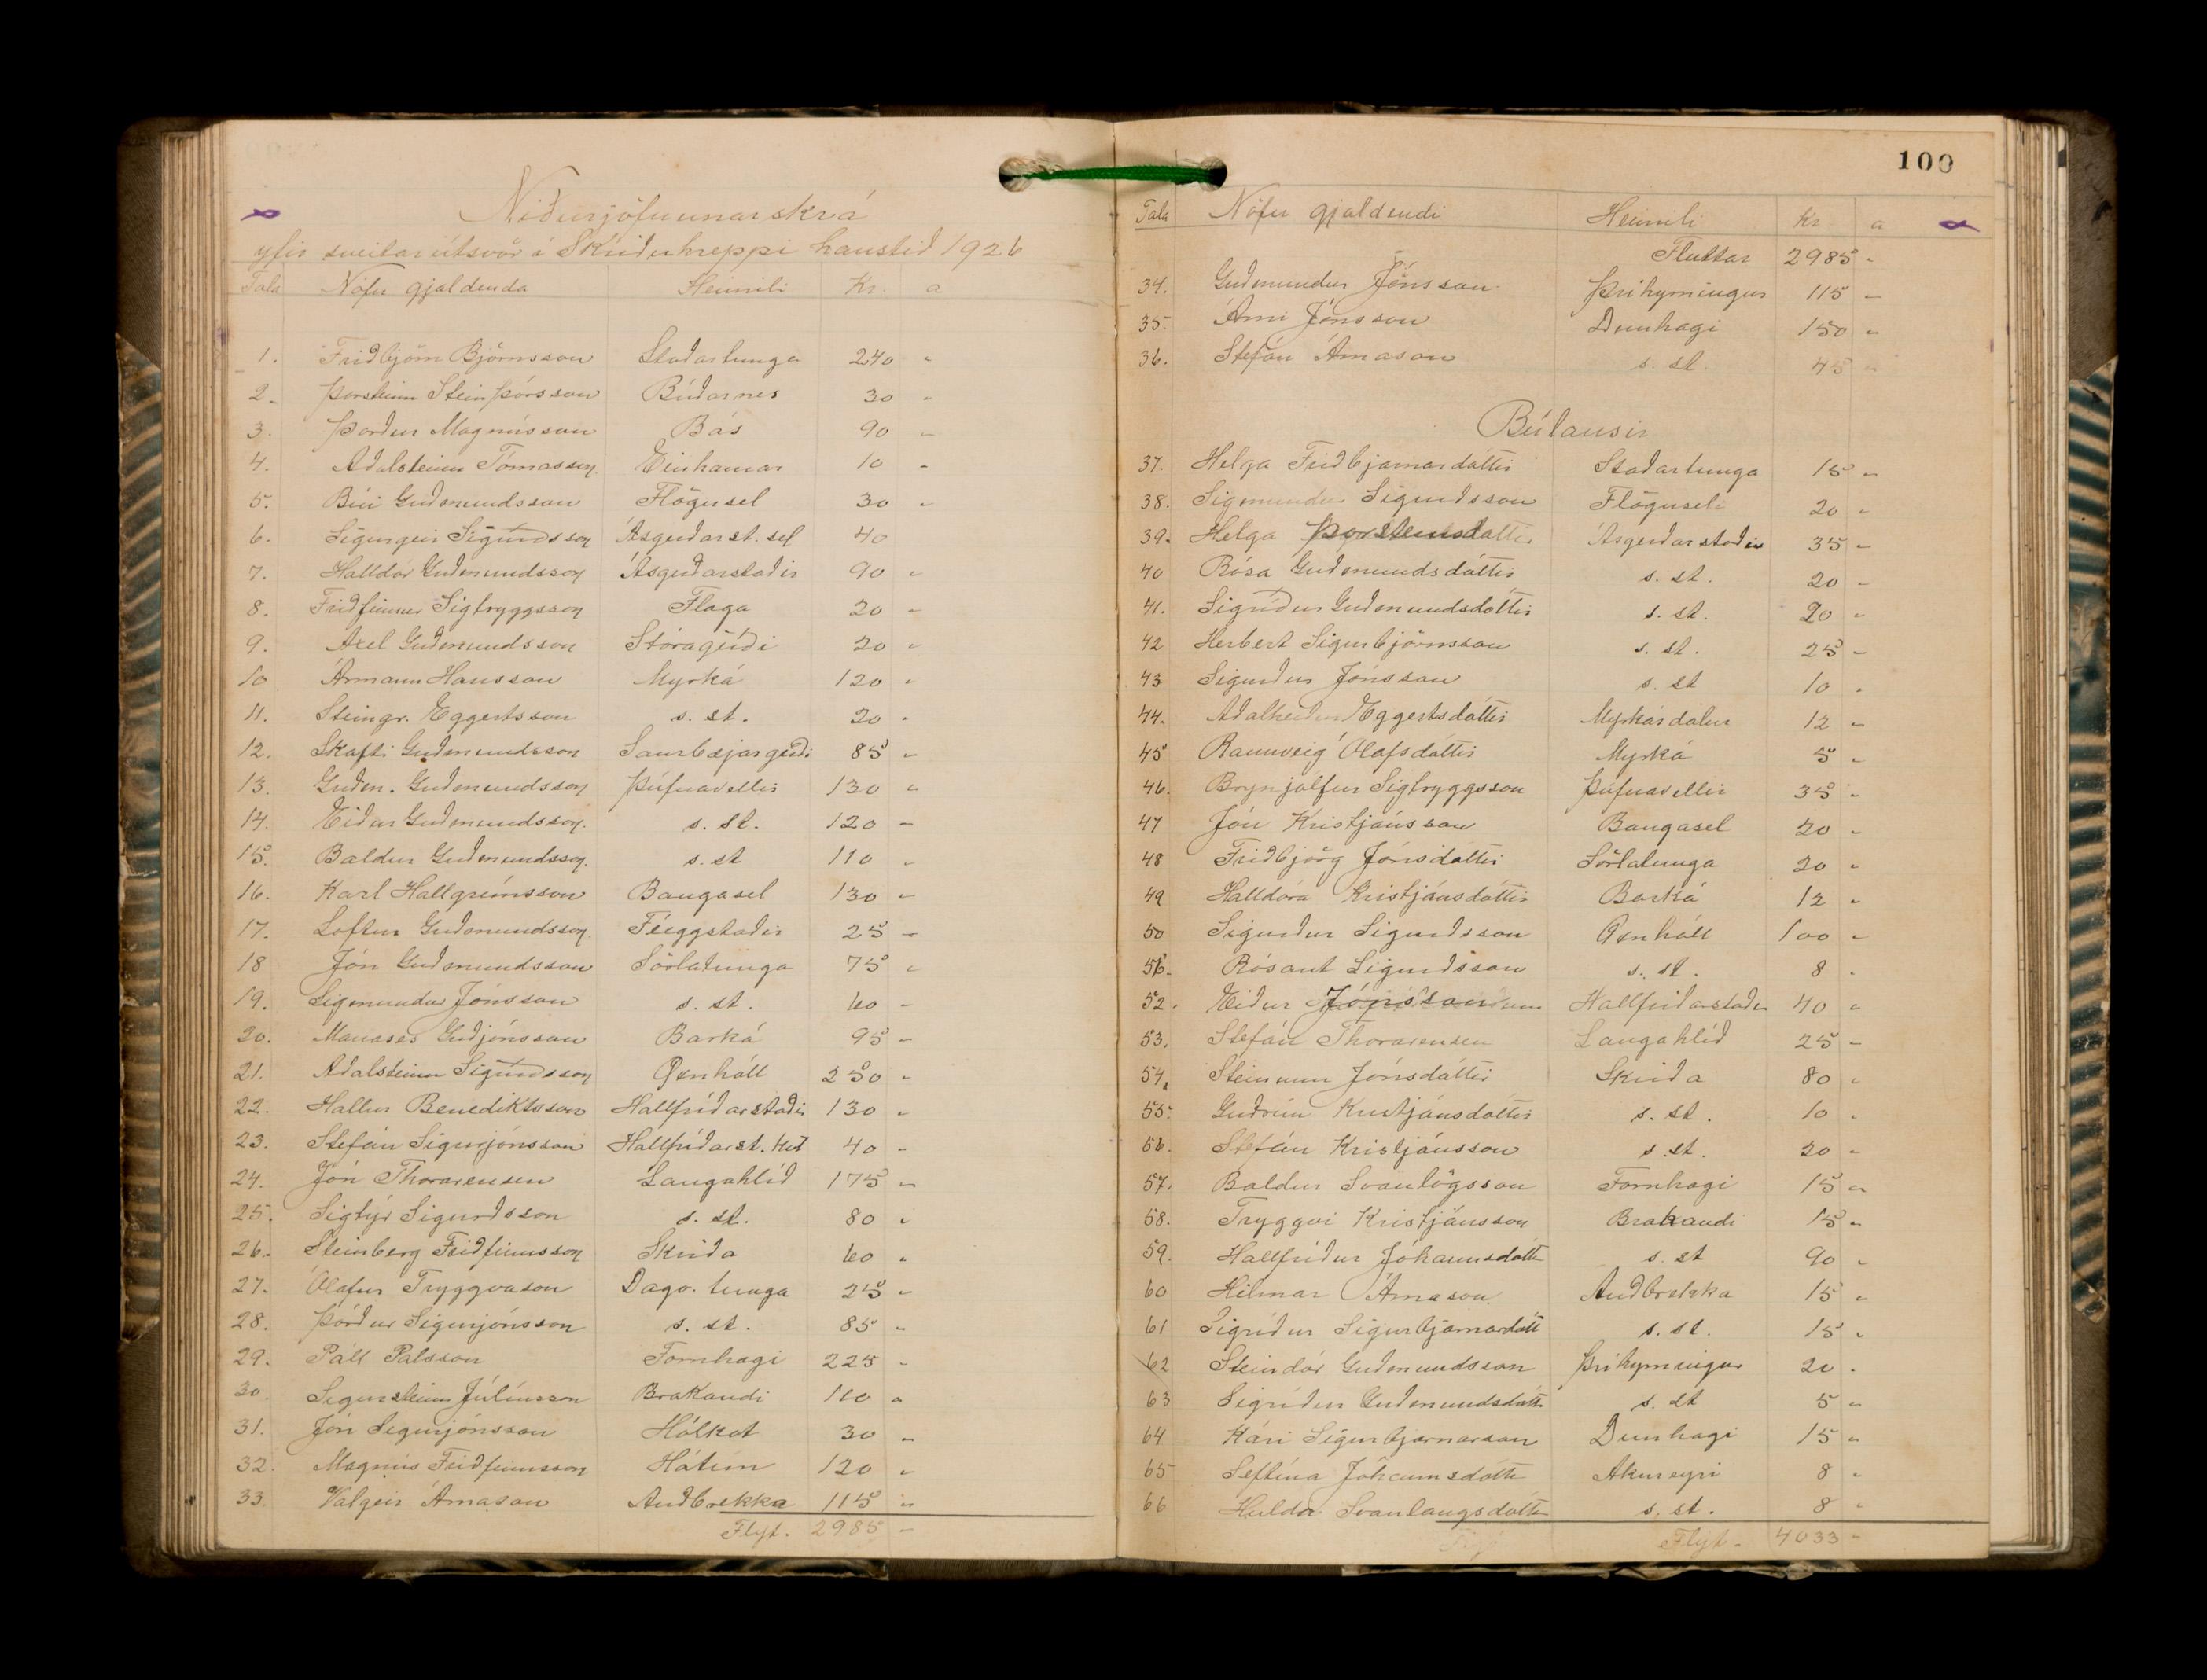 Niðurjöfnunarskrá
yfir sveitarútsvör í Skriðuhreppi haustið 1926
Tala Nöfn gjaldenda Heimili Kr. a
1. Friðbjörn Björnsson Staðartunga 240 "
2. Þorsteinn Steinþórsson Búðarnes 30 "
3. Þorður Magnússon Bás 90 "
4. Aðalsteinn Tómasson Einhamar 10 "
5. Búi Guðmundsson Flögusel 30 "
6. Sigurgeir Sigurðsson Ásgerðarst. sel 40
7. Halldór Guðmundsson Ásgerðarstaðir 90 "
8. Friðfinnur Sigtryggsson Flaga 20 "
9. Axel Guðmundsson Stóragerði 20 "
10 Ármann Hansson Myrká 120 "
11. Steingr. Eggertsson s. st. 20 "
12. Skafti Guðmundsson Saurbæjargerði 85 "
13. Guðm. Guðmundsson Þúfnavellir 130 "
14. Eiður Guðmundsson. s. st. 120 "
15. Baldur Guðmundsson. s. st 110 "
16. Karl Hallgrímsson Baugasel 130 "
17. Loftur Guðmundsson. Féeggstaðir 25 "
18 Jón Guðmundsson Sörlatunga 75 "
19. Sigmundur Jónsson s. st. 60 "
20. Manases Guðjónsson Barká 95 "
21. Aðalsteinn Sigurðsson Öxnhóll 250 "
22. Hallur Benediktsson Hallfríðarstaðir 130 "
23. Stefán Sigurjónsson Hallfríðarst. kot 40 "
24. Jón Thorarensen Langahlíð 175 "
25. Sigtýr Sigurðsson s. st. 80 "
26. Steinberg Friðfinnsson Skriða 60 "
27. Ólafur Tryggvason Dago. tunga 25 "
28. Þórður Sigurjónsson s. st. 85 "
29. Páll Palsson Fornhagi 225 "
30. Sigursteinn Júlíusson Brakandi 110 "
31. Jón Sigurjónsson Hólkot 30 "
32. Magnús Friðfinnsson Hátún 120 "
33. Valgeir Árnason Auðbrekka 115 "
Flyt. 2985 "
100
Tala Nöfn gjaldendi Heimili Kr a
Fluttar 2985 "
34. Guðmundur Jónsson Þríhyrningur 115 "
35. Árni Jónsson Dunhagi 150 "
36. Stefán Árnason s. st. 45 "
Búlausir
37. Helga Friðbjarnardóttir Staðartunga 15 "
38. Sigmundur Sigurðsson Flöguseli 20 "
39. Helga Þorsteinsdóttir Ásgerðarstaðir 35 "
40 Rósa Guðmundsdóttir s. st. 20 "
41. Sigríður Guðmundsdóttir s. st. 20 "
42 Herbert Sigurbjörnsson s. st. 25 "
43 Sigurður Jónsson s. st 10 "
44. Aðalheiður Eggertsdóttir Myrkárdalur 12 "
45 Rannveig Ólafsdóttir Myrká 5 "
46. Brynjólfur Sigtryggsson Þúfnavellir 35 "
47 Jón Kristjánsson Baugasel 20 "
48 Friðbjörg Jónsdóttir Sörlatunga 20 "
49 Halldóra Kristjánsdóttir Barká 12 "
50 Sigurður Sigurðsson Öxnhóll 100 "
51. Rósant Sigurðsson s. st. 8 "
52. Eiður Jónsson Hallfríðarstaðir 40 "
53. Stefán Thorarensen Langahlíð 25 "
54. Steinunn Jónsdóttir Skriða 80 "
55. Guðrún Kristjánsdóttir s. st. 10 "
56. Stefán Kristjánsson s. st. 20 "
57. Baldur Svanlögsson Fornhagi 15 "
58. Tryggvi Kristjánsson Brakandi 15 "
59. Hallfríður Jóhannsdóttir s. st 90 "
60 Hilmar Árnason Auðbrekka 15 "
61 Sigríður Sigurbjarnardótt s. st. 15 "
62 Steindór Guðmundsson Þríhyrningur 20 "
63 Sigríður Guðmundsdótti s. st 5 "
64 Kári Sigurbjarnarson Dunhagi 15 "
65 Seftína Jóhannsdóttir Akureyri 8 "
66 Hulda Svanlaugsdóttir s. st. 8 "
Flyt. 4033 "